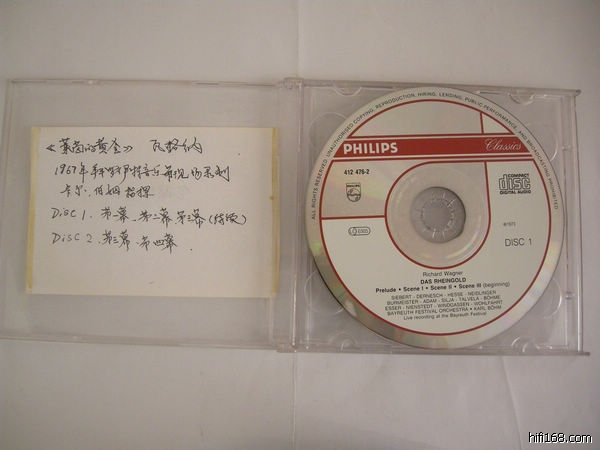 《莱茵的黄金》 瓦格纳
1967年 音乐节现场录制
卡尔.伯姆指挥
Disc 1. 第一幕、第二幕 第三幕
Disc 2. 第三幕、第四幕
ALL RIGHTS RESERVED. UNAUTHORISED COPYING, REPRODUCTION, HIRING, LENDING, PUBLIC PERFORMANCE AND BROADCASTING PROHIBITED
PHILIPS Classics
412 476-2
PHILIPS
COMPACT
disc
DIGITAL AUDIO
DISC 1
Richard Wagner
DAS RHEINGOLD
Prelude • Scene I • Scene II • Scene III (beginning)
SIEBERT - DERNESCH - HESSE - NEIDLINGER
BURMEISTER - ADAM - SILJA - TALVELA - BÖHME
ESSER - NIENSTEDT - WINDGASSEN - WOHLFAHRT
BAYREUTH FESTIVAL ORCHESTRA • KARL BÖHM
Live recording at the Bayreuth Festival
hifi168.com